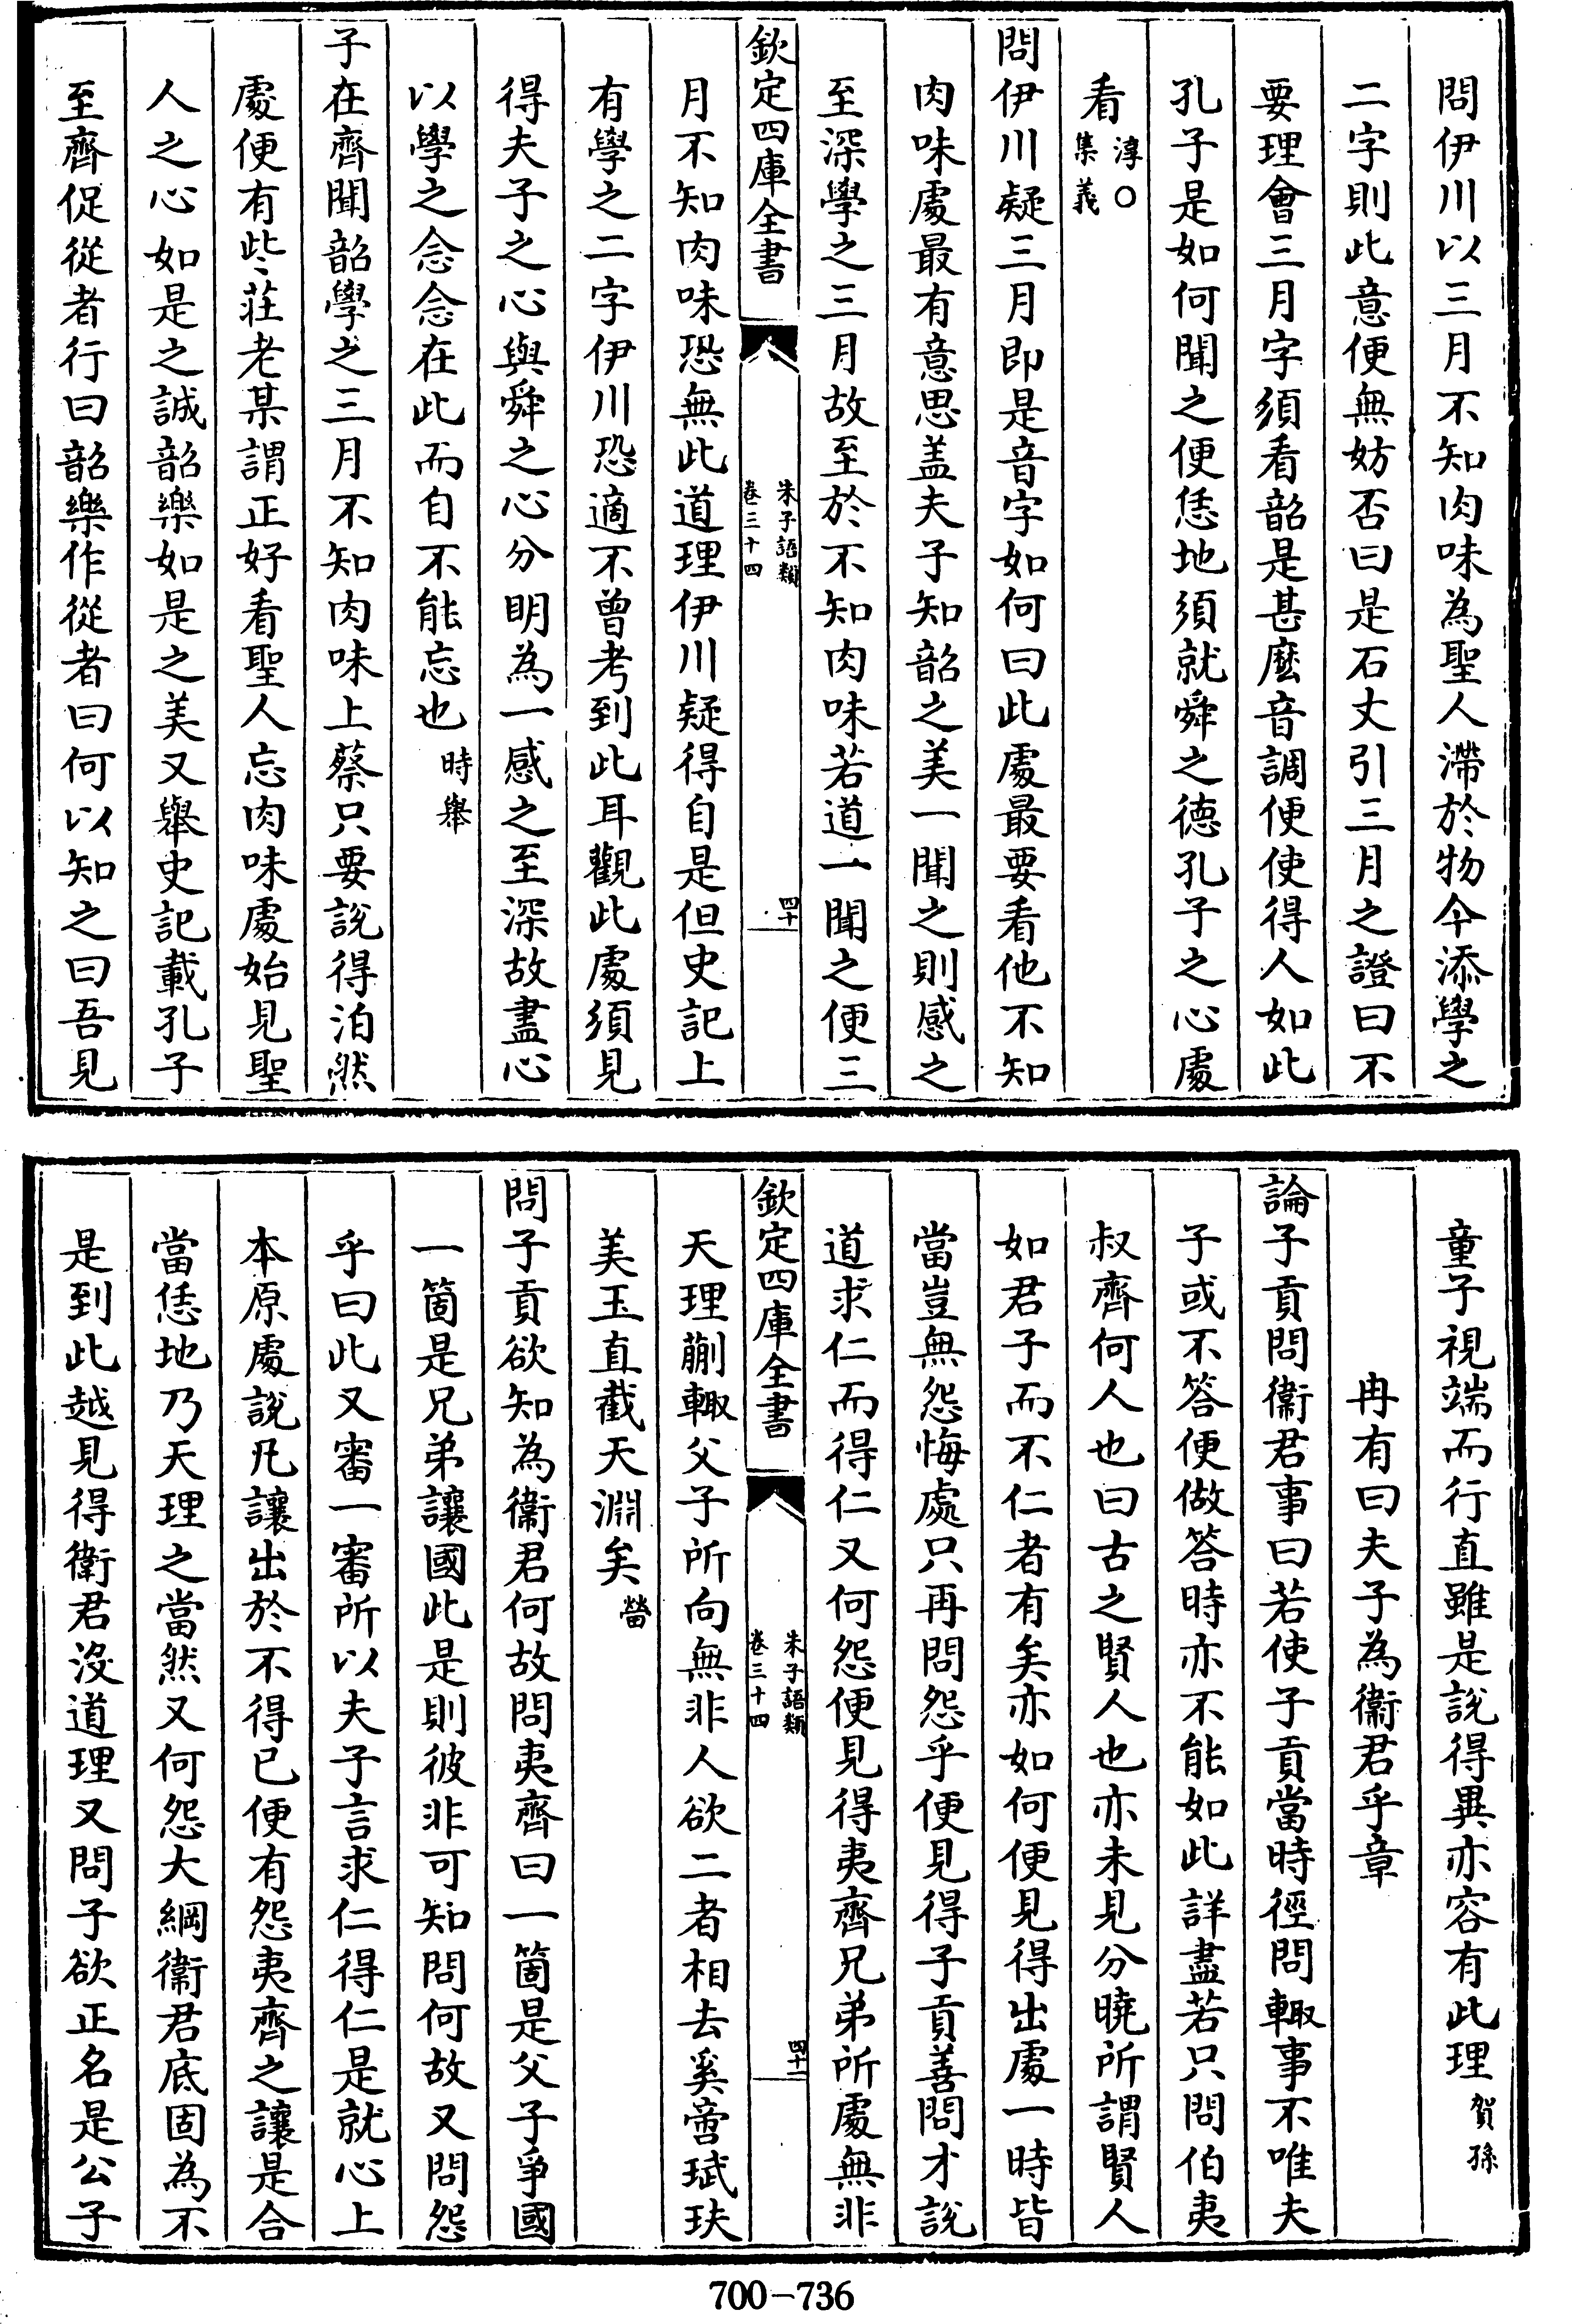 問伊川以三月不知肉味為聖人滯於物今添學之
二字則此意便無妨否曰是石丈引三月之證曰不
要理會三月字須看韶是甚麽音調便使得人如此
孔子是如何聞之便恁地須就舜之德孔子之心處
看淳○集義
問伊川疑三月即是音字如何曰此處最要看他不知
肉味處最有意思盖夫子知韶之美一聞之則感之
至深學之三月故至於不知肉味若道一聞之便三
欽定四庫全書
朱子語類
卷三十四
四十
月不知肉味恐無此道理伊川疑得自是但史記上
有學之二字伊川恐適不曾考到此耳觀此處須見
得夫子之心與舜之心分明為一感之至深故盡心
以學之念念在此而自不能忘也時舉
子在齊聞韶學之三月不知肉味上蔡只要說得泊然
處便有些莊老某謂正好看聖人忘肉味處始見聖
人之心如是之誠韶樂如是之美又舉史記載孔子
至齊促從者行曰韶樂作從者曰何以知之曰吾見
童子視端而行直雖是說得異亦容有此理賀孫
冉有曰夫子為衞君乎章
論子貢問衞君事曰若使子貢當時徑問輙事不唯夫
子或不答便做答時亦不能如此詳盡若只問伯夷
叔齊何人也曰古之賢人也亦未見分曉所謂賢人
如君子而不仁者有矣亦如何便見得出處一時皆
當豈無怨悔處只再問怨乎便見得子貢善問才說
道求仁而得仁又何怨便見得夷齊兄弟所處無非
欽定四庫全書
朱子語類
卷三十四
四十一
天理蒯輙父子所向無非人欲二者相去奚啻珷玞
美玉直截天淵矣㽦
問子貢欲知為衞君何故問夷齊曰一箇是父子爭國
一箇是兄弟讓國此是則彼非可知問何故又問怨
乎曰此又審一審所以夫子言求仁得仁是就心上
本原處說凡讓出於不得已便有怨夷齊之讓是合
當恁地乃天理之當然又何怨大綱衞君底固為不
是到此越見得衞君沒道理又問子欲正名是公子
700-736